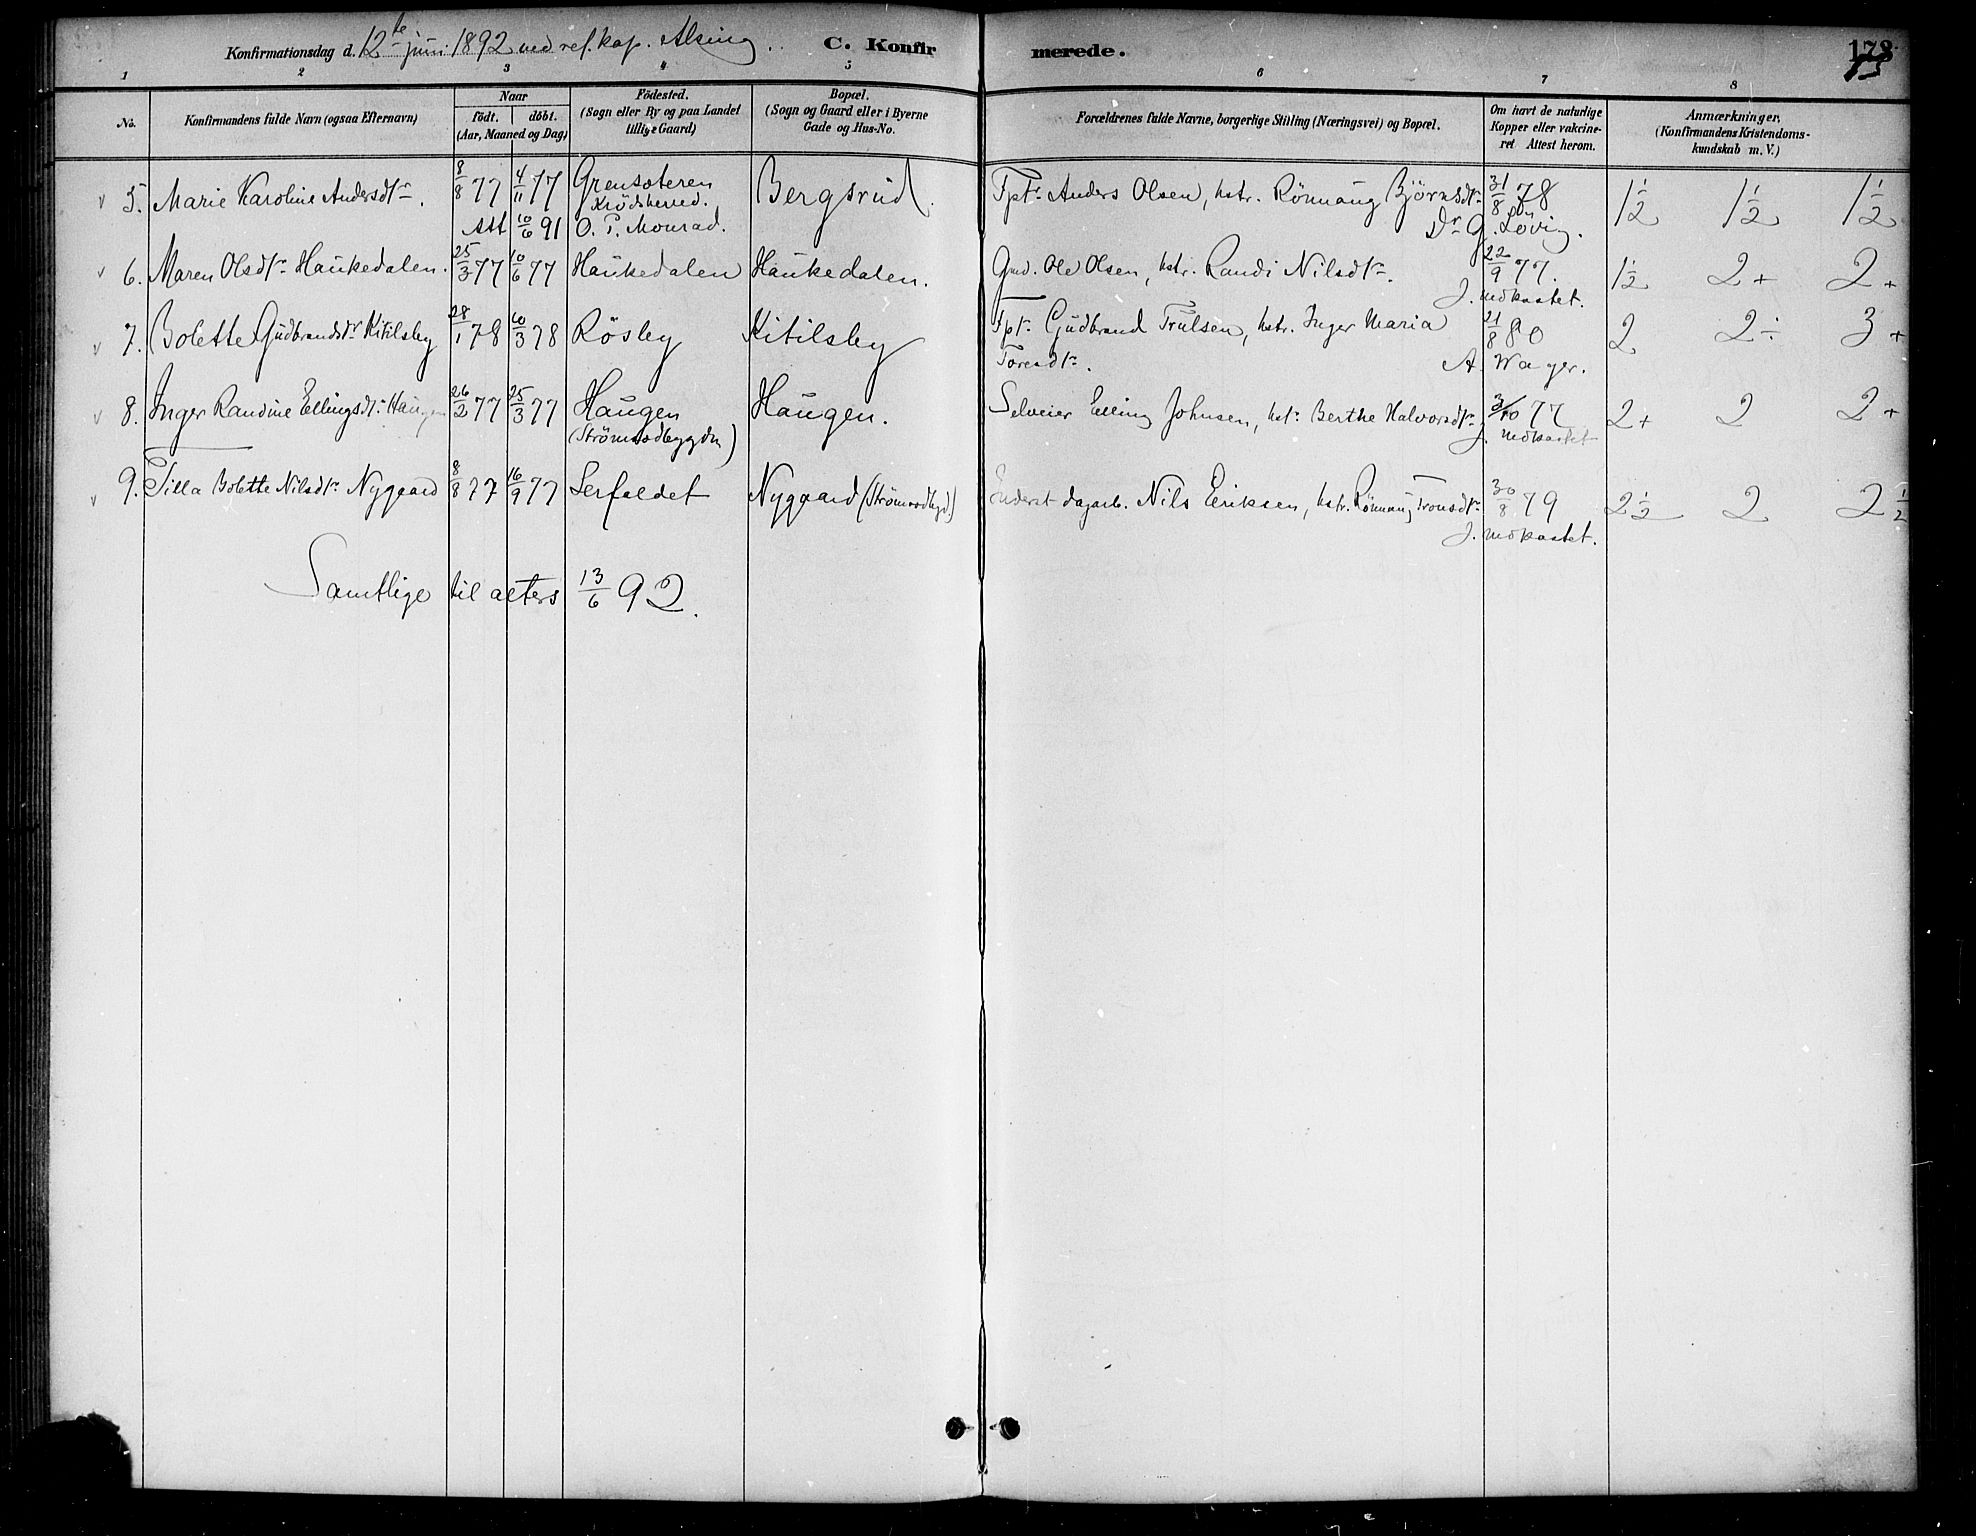 Konfirmationsdag d. 12te juni 1892 ved res. kap. Alsing. C. Konfirmerede. 178
73
1 2 3 4 5 6 7 8
No. Konfirmandens fulde Navn (ogsaa Efternavn) Naar födt. döbt. (Aar, Maaned og Dag) Födested. (Sogn eller By og paa Landet tillige Gaard) Bopæl. (Sogn og Gaard eller i Byerne Gade og Hus-No. Forældrenes fulde Navne, borgerlige Stilling (Næringsvei) og Bopæl. Om havt de naturlige Kopper eller vakcineret Attest herom. Anmærkninger. (Konfirmandens Kristendomskundskab m. V.)
5. Marie Karoline Andersdtr. 8/8 77 4/11 77 Grensæteren Bergsrud. Tptr. Anders Olsen, hstr. Rönnaug Björnsdtr. 31/8 78 1½ 1½ 1½
Krödsherred.
Att 10/6 91 O. P. Monrad. Dr. G. Lövig.
6. Maren Olsdtr. Haukedalen. 25/3 77 10/6 77 Haukedalen Haukedalen. Gmd. Ole Olsen, hstr. Randi Nilsdtr. 22/9 77. 1½ 2+ 2+
J. Medkastet.
7. Bolette Gudbrandsdtr Kitilsby 28/1 78 10/3 78 Rösby Kitilsby Tptr. Gudbrand Trulsen, hstr. Inger Maria 21/8 80 2 2÷ 3+
Toresdtr. A. Wager.
8. Inger Randine Ellingsdtr. Haugen 26/2 77 25/3 77 Haugen Haugen. Selveier Elling Johnsen, hstr. Berthe Halvorsdtr. 3/10 77 2+ 2 2+
(Strömsodbygdn) J. Medkastet
9. Tilla Bolette Nilsdtr. Nygaard 8/8 77 16/9 77 Lerfaldet Nygaard (Strömsodbygd.) Inderst dagarb. Nils Eriksen, hstr. Rönnaug Tronsdtr. 30/8 79 2½ 2 2½
J. Medkastet.
Samtlige til alters 13/6 92.